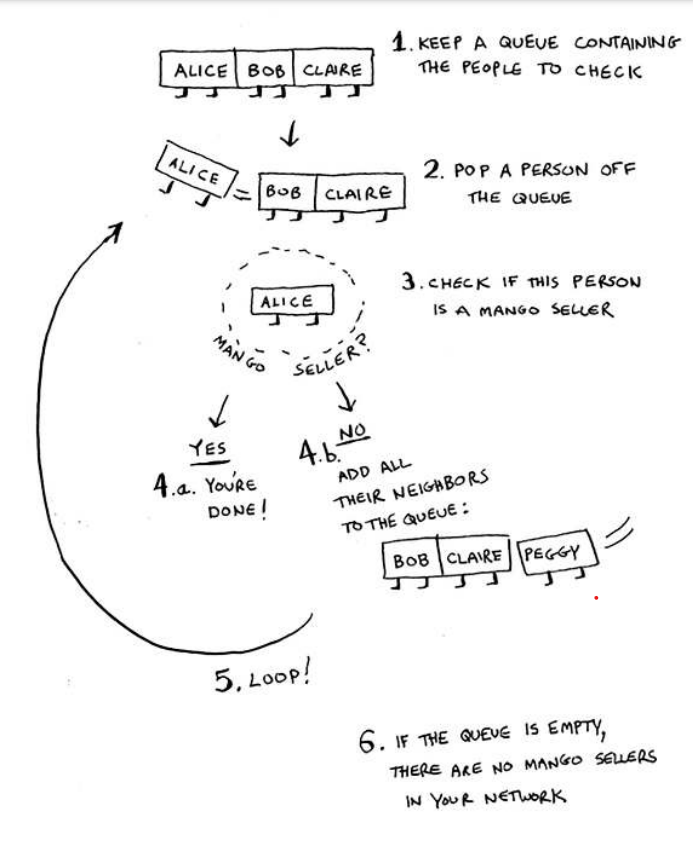 ALICE BOB CLAIRE
1. KEEP A QUEUE CONTAINING
THE PEOPLE TO CHECK
ALICE = BOB CLAIRE
2. POP A PERSON OFF
THE QUEUE
ALICE
MANGO SELLER?
3. CHECK IF THIS PERSON
IS A MANGO SELLER
YES
4.a. YOU'RE
DONE!
4.b. NO
ADD ALL
THEIR NEIGHBORS
TO THE QUEUE:
BOB CLAIRE PEGGY
5. LOOP!
6. IF THE QUEUE IS EMPTY,
THERE ARE NO MANGO SELLERS
IN YOUR NETWORK